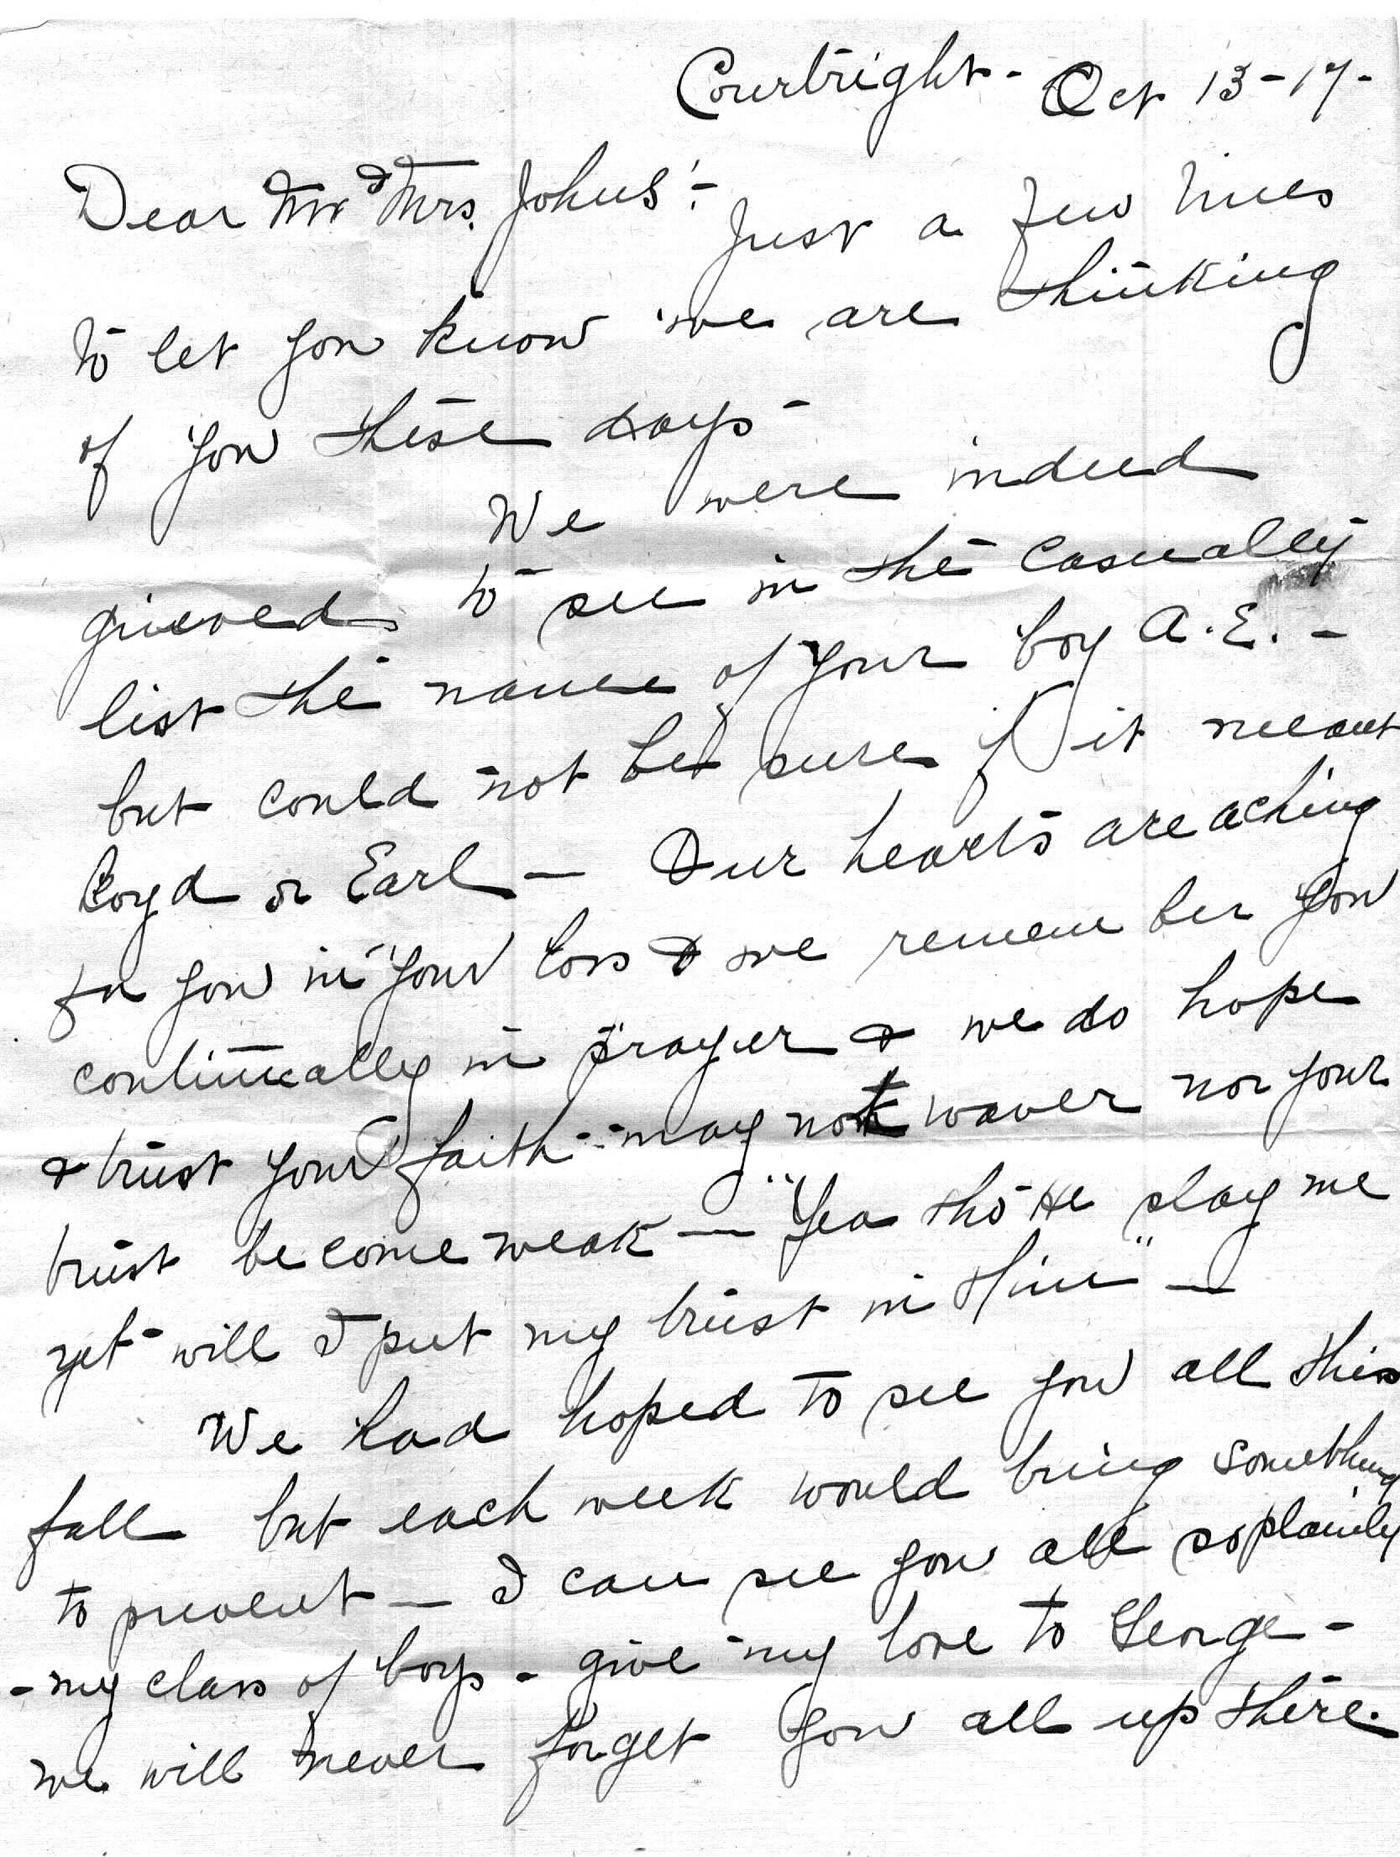 Courtright - Oct 13 - 17 -
Dear Mr & Mrs. Johns :-
Just a few lines
to let you know we are thinking
of you these days -
We were indeed
grieved to see in the Casualty
list the name of your boy A. E. -
but could not be sure if it meant
Boyd or Earl — Our hearts are aching
for you in your loss & we remember you
continually in prayer & we do hope
& trust your faith may not waver nor your
trust become weak — "Yea tho He slay me
yet will I put my trust in Him" —
We had hoped to see you all this
fall but each week would bring something
to prevent — I can see you all so plainly
- my class of boys - give my love to George -
we will never forget you all up there.